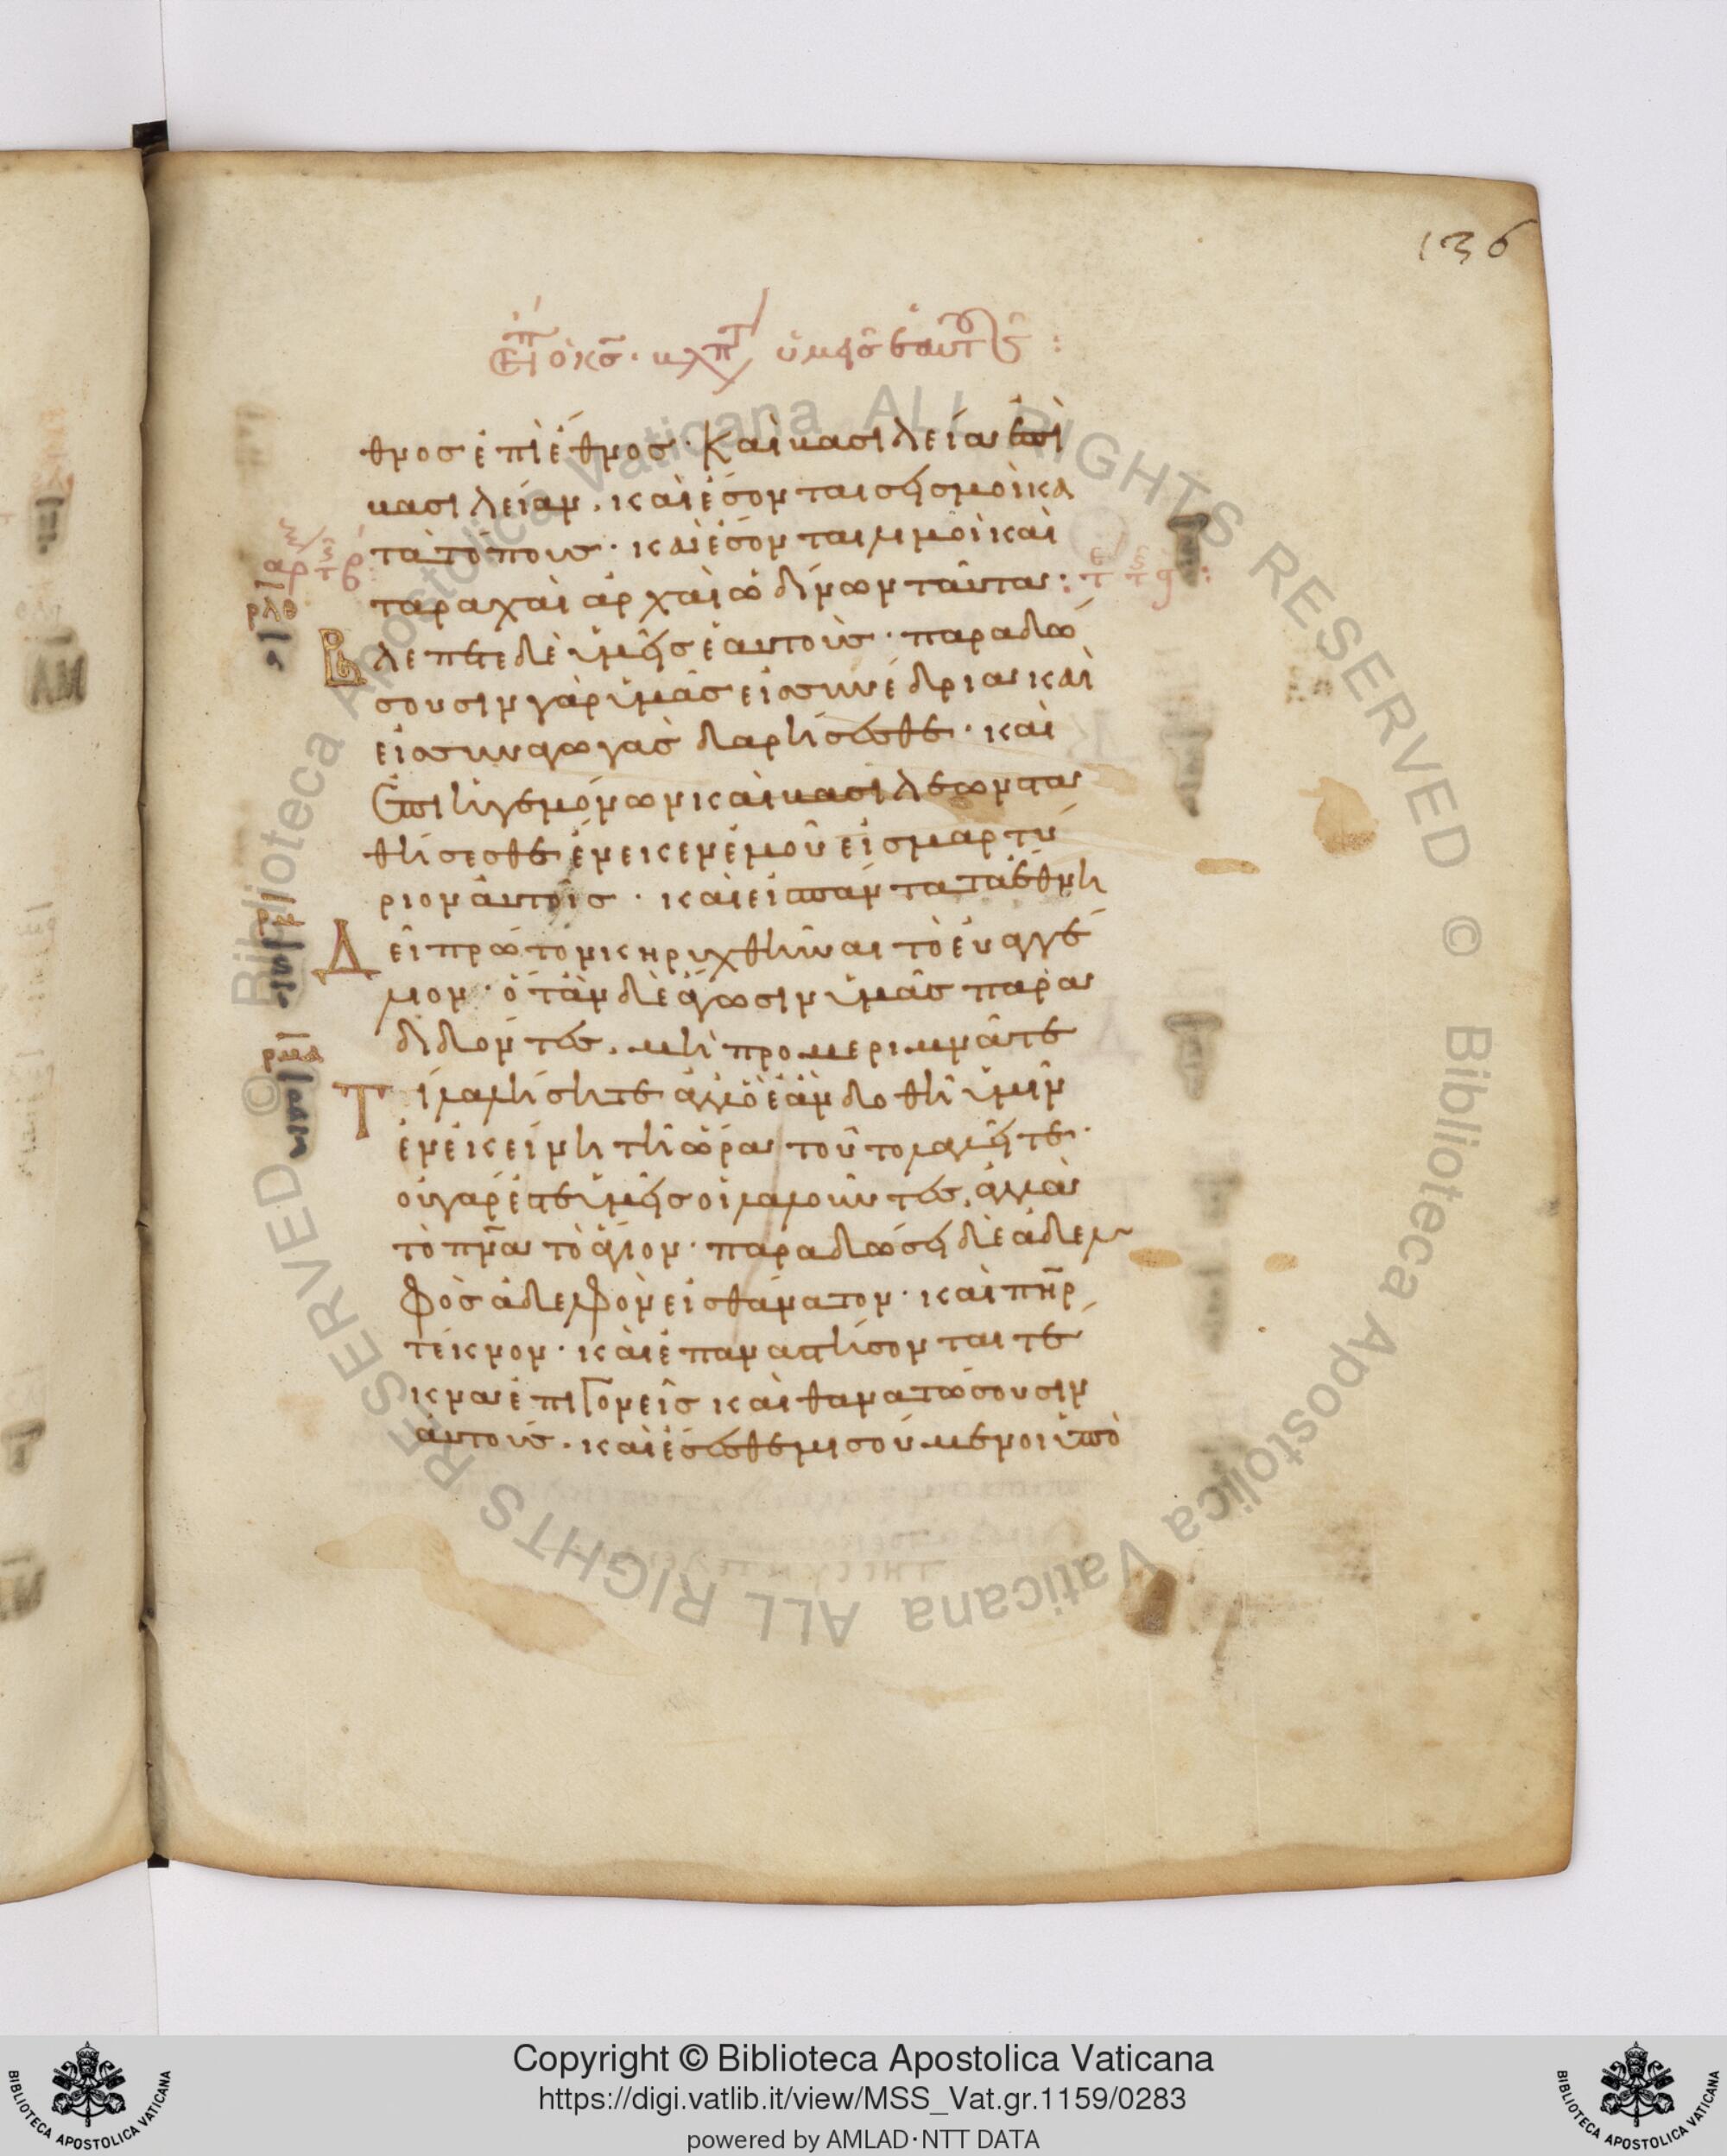 136
θνος ἐπὶ ἔθνος· Καὶ βασιλεία ἐπὶ
βασιλείαν. καὶ ἔσονται σεισμοὶ κα
τὰ τόπους· καὶ ἔσονται λιμοὶ καὶ
ταραχαί ἀρχαὶ ὠδίνων ταῦτα:
ρλθ
Βλέπετε δὲ ὑμεῖς ἑαυτούς· παραδώ
σουσιν γὰρ ὑμᾶς εἰς συνέδρια καὶ
εἰς συναγωγὰς δαρήσεσθε· καὶ
ἐπὶ ἡγεμόνων καὶ βασιλέων στα
θήσεσθε ἕνεκεν ἐμοῦ εἰς μαρτύ
ριον αὐτοῖς· καὶ εἰς πάντα τὰ ἔθνη
Δεῖ πρῶτον κηρυχθῆναι τὸ εὐαγγέ
λιον· ὅταν δὲ ἄγωσιν ὑμᾶς παρα
διδόντες. μὴ προμεριμνᾶτε
ρμα
Τί λαλήσητε ἀλλ' ὃ ἐὰν δοθῆ ὑμῖν
ἐν ἐκείνη τῆ ὥρα τοῦτο λαλεῖτε·
οὐ γάρ ἐστε ὑμεῖς οἱ λαλοῦντες. ἀλλὰ
τὸ πνα τὸ ἅγιον· παραδώσει δὲ ἀδελ
φὸς ἀδελφὸν εἰς θάνατον· καὶ πηρ
τέκνον· καὶ ἐπαναστήσονται τέ
κνα ἐπὶ γονεῖς καὶ θανατώσουσιν
αὐτούς· καὶ ἔσεσθε μισούμενοι ὑπὸ
Copyright © Biblioteca Apostolica Vaticana
https://digi.vatlib.it/view/MSS_Vat.gr.1159/0283
powered by AMLAD·NTT DATA
BIBLIOTECA APOSTOLICA VATICANA
BIBLIOTECA APOSTOLICA VATICANA
© Biblioteca Apostolica Vaticana ALL RIGHTS RESERVED © Biblioteca Apostolica Vaticana ALL RIGHTS RESERVED